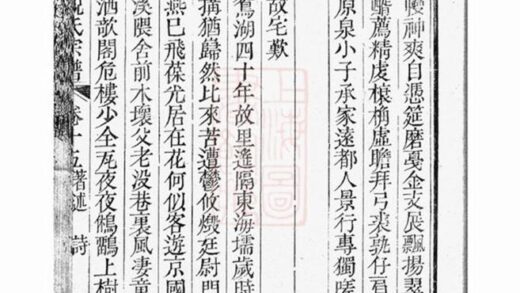 神爽自憑筵磨戛金支展飄揚翠
薦精虔榱桷虛瞻拜弓裘孰仔肩
原泉小子承家遠都人景行專獨
故宅歎
鴛湖四十年故里遙隔東海壖歲時
搆猶巋然比來苦遭鬱攸燬廷尉門
燕巳飛葆光居在花何似客遊京國
溪隈舍前木壞父老没巷裏風妻童
洒欹閣危樓少全瓦夜夜鵂鶹上樹
氏宗譜 卷十五著述 詩
上海圖